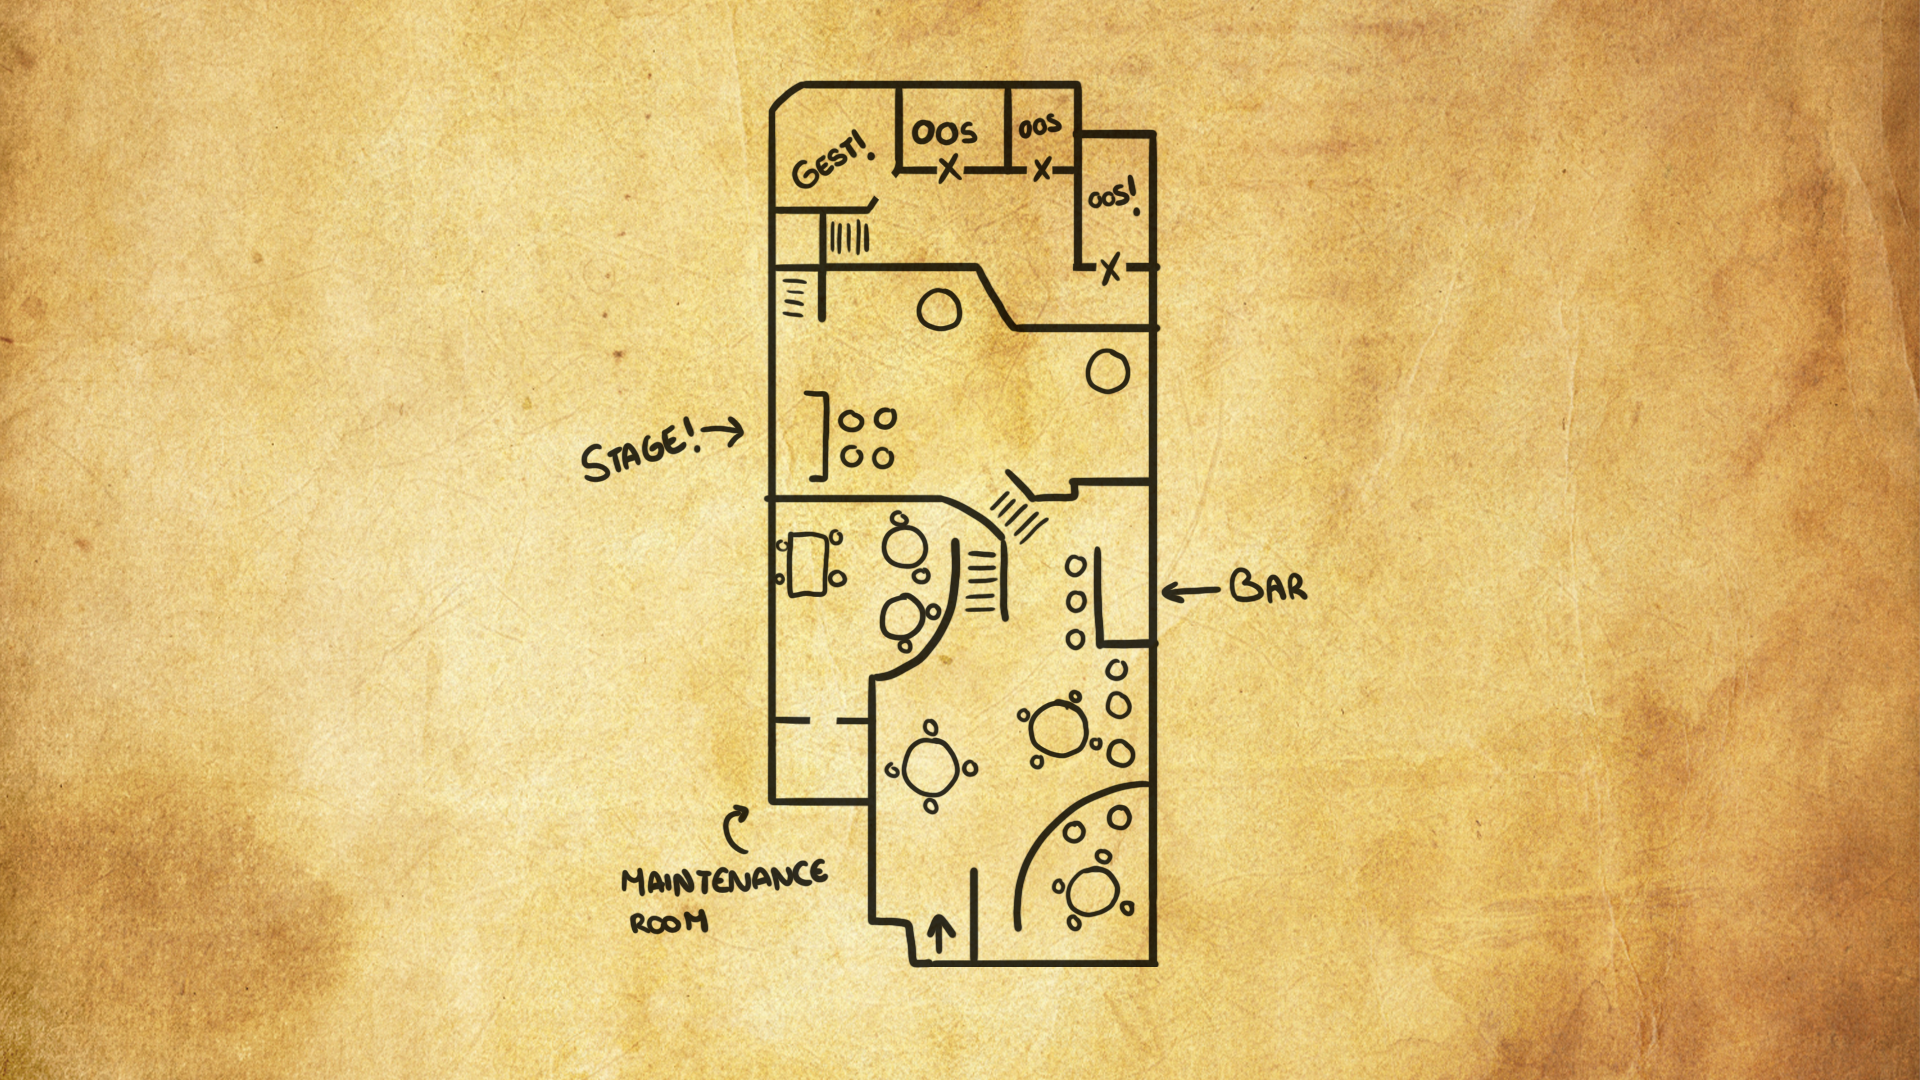 GEST!
OOS
OOS
OOS!
STAGE!
BAR
MAINTENANCE
ROOM